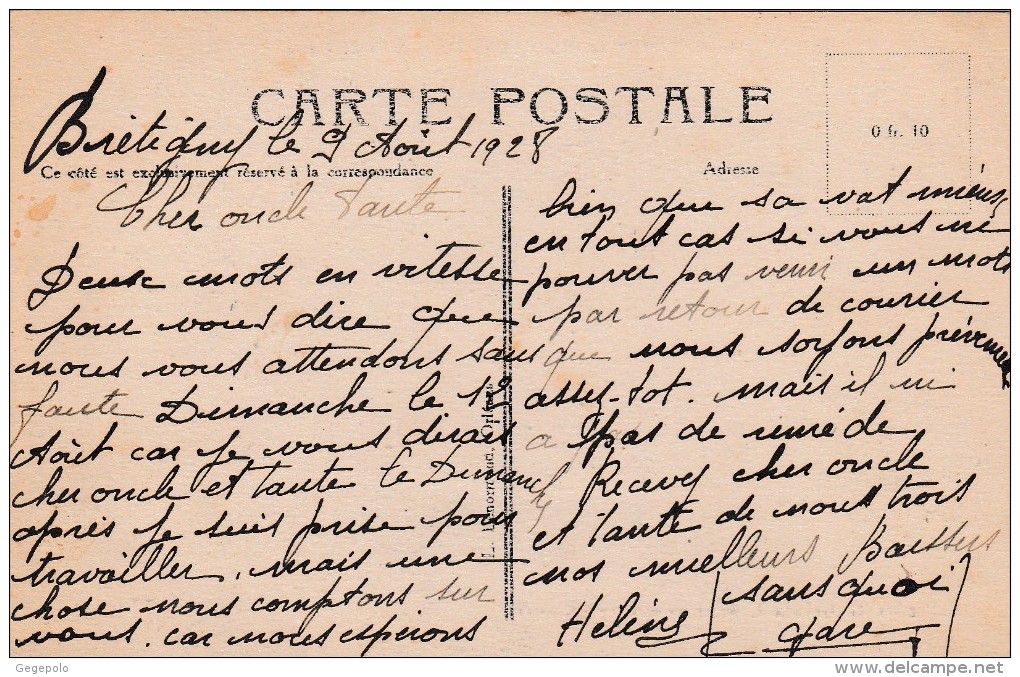 CARTE POSTALE
0 fr. 10
Brétigny le 9 Août 1928
Ce côté est exclusivement réservé à la correspondance
Adresse
Cher oncle tante
Deux mots en vitesse
pour vous dire que
nous vous attendons sans
faute Dimanche le 12
Août car je vous dirais
cher oncle et tante le Dimanche
après je suis prise pour
travailler. mais une
chose nous comptons sur
vous. car nous espérons
bien que sa vat mieux
en tout cas si vous ne
pouver pas venir un mots
par retour de courier
que nous soyons prévenue
assez-tot. mais il ni
a pas de remé de
Recevez cher oncle
et tante de nous trois
nos meilleurs Baisers
Helène
sans quoi
gare
Orléans
Gegepolo
www.delcampe.net